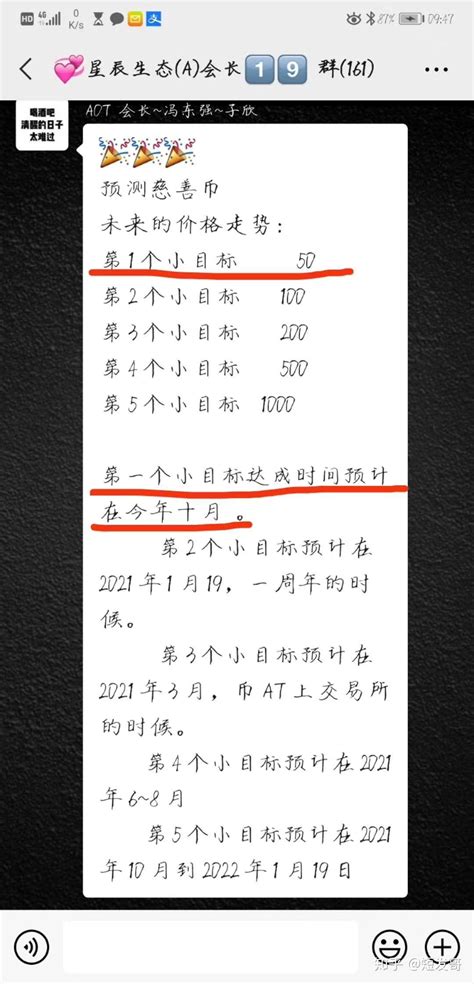 HD 4G 0 K/s 87% 09:47
星辰生态(A)会长1 9 群(161)
喝酒吧
清醒的日子
太难过
AOT 会长~冯东强~子欣
预测慈善币
未来的价格走势:
第1个小目标 50
第2个小目标 100
第3个小目标 200
第4个小目标 500
第5个小目标 1000
第一个小目标达成时间预计
在今年十月。
第2个小目标预计在
2021年1月19,一周年的时
候。
第3个小目标预计在
2021年3月,币AT上交易所
的时候。
第4个小目标预计在2021
年6~8月
第5个小目标预计在2021
年10月到2022年1月19日
知乎 @短发哥